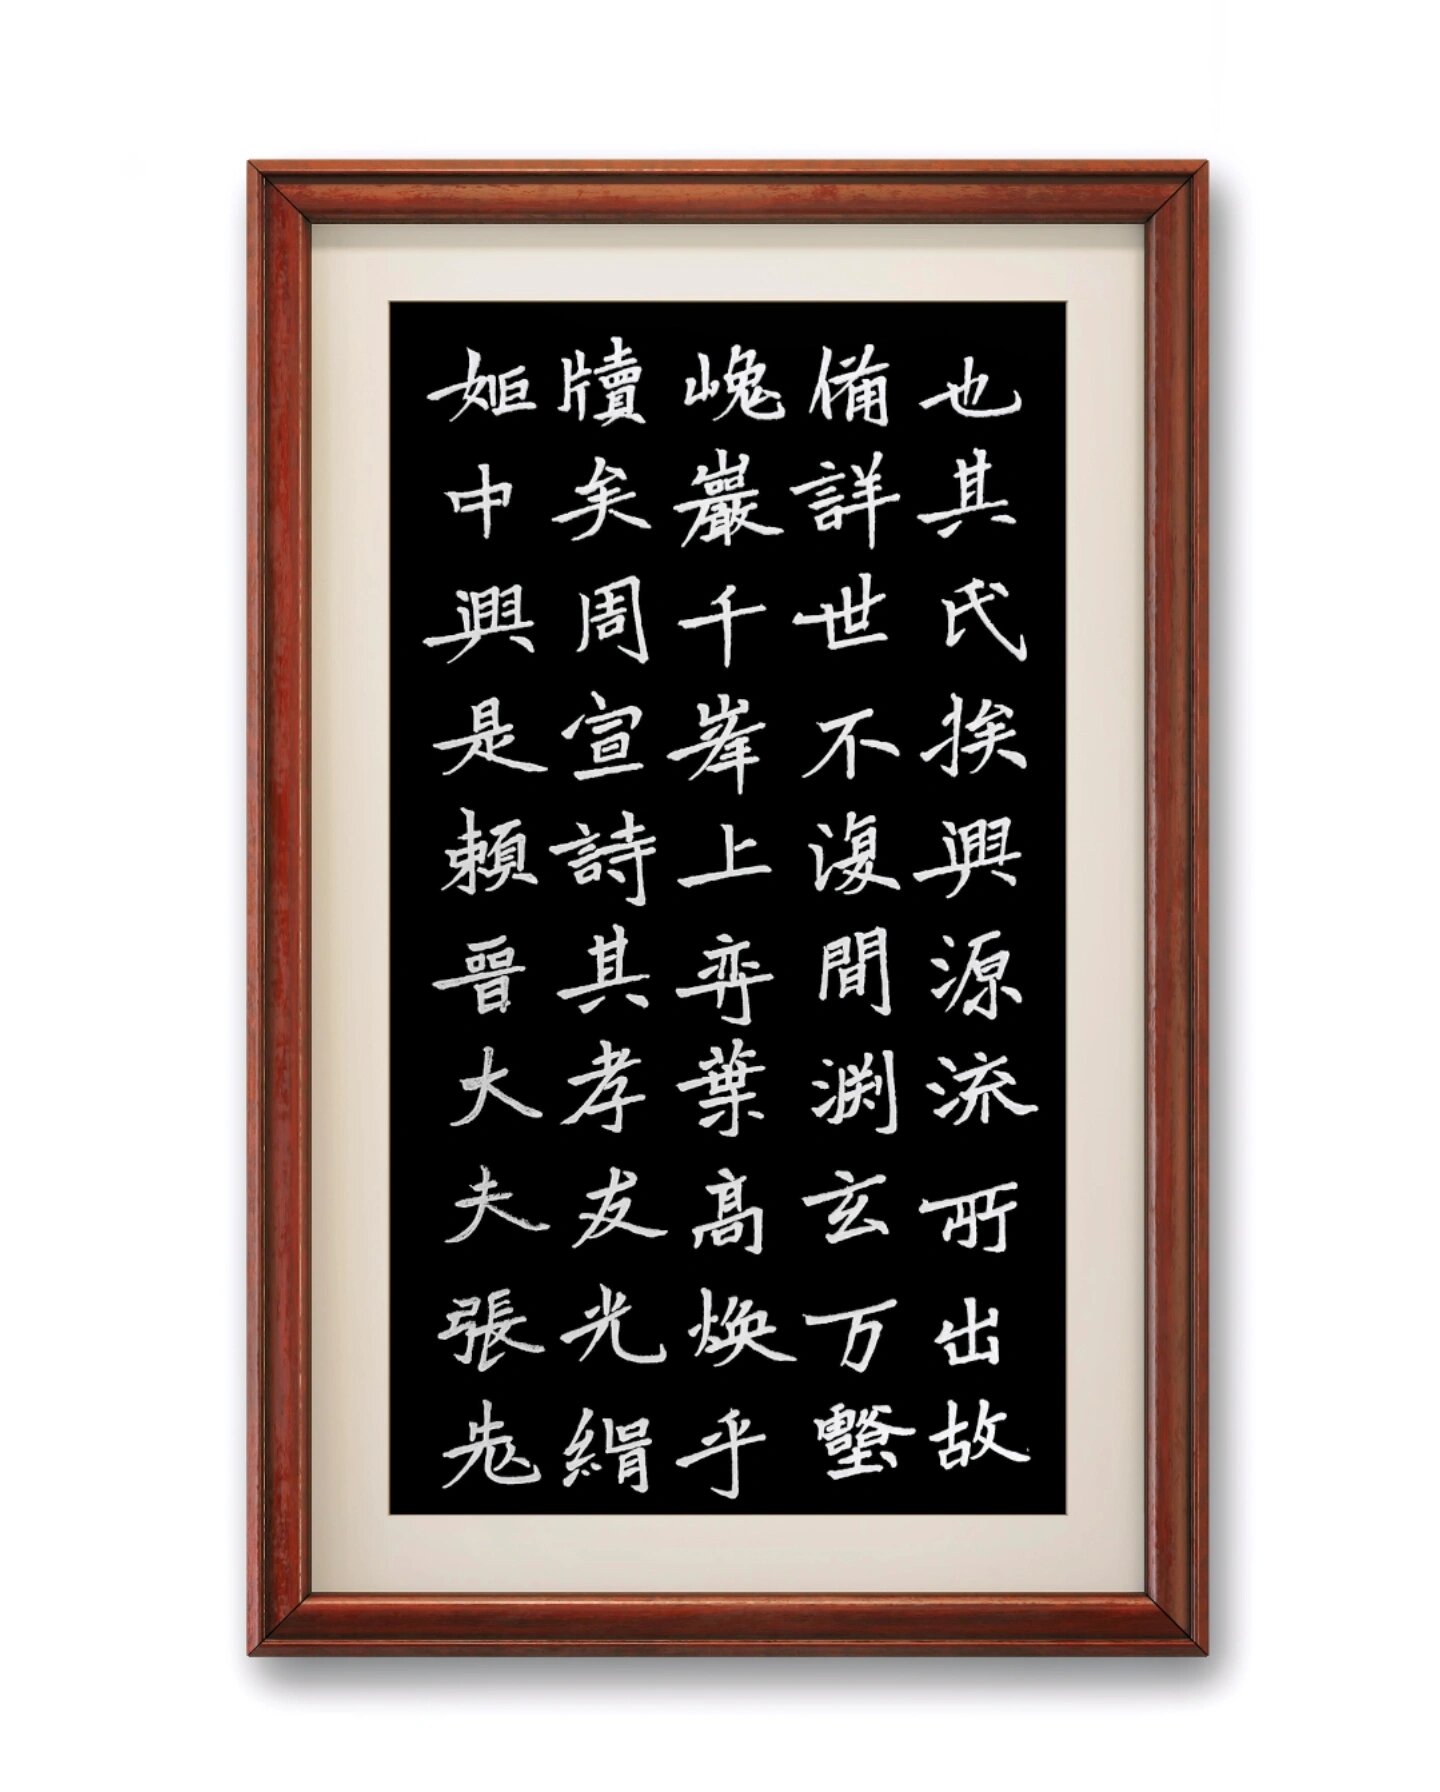 也其氏挨興源流所出故
備詳世不復間渕玄万壑
嵬巖千峯上弈葉高煥乎
牘矣周宣詩其孝友光緝
姬中興是賴晉大夫張老